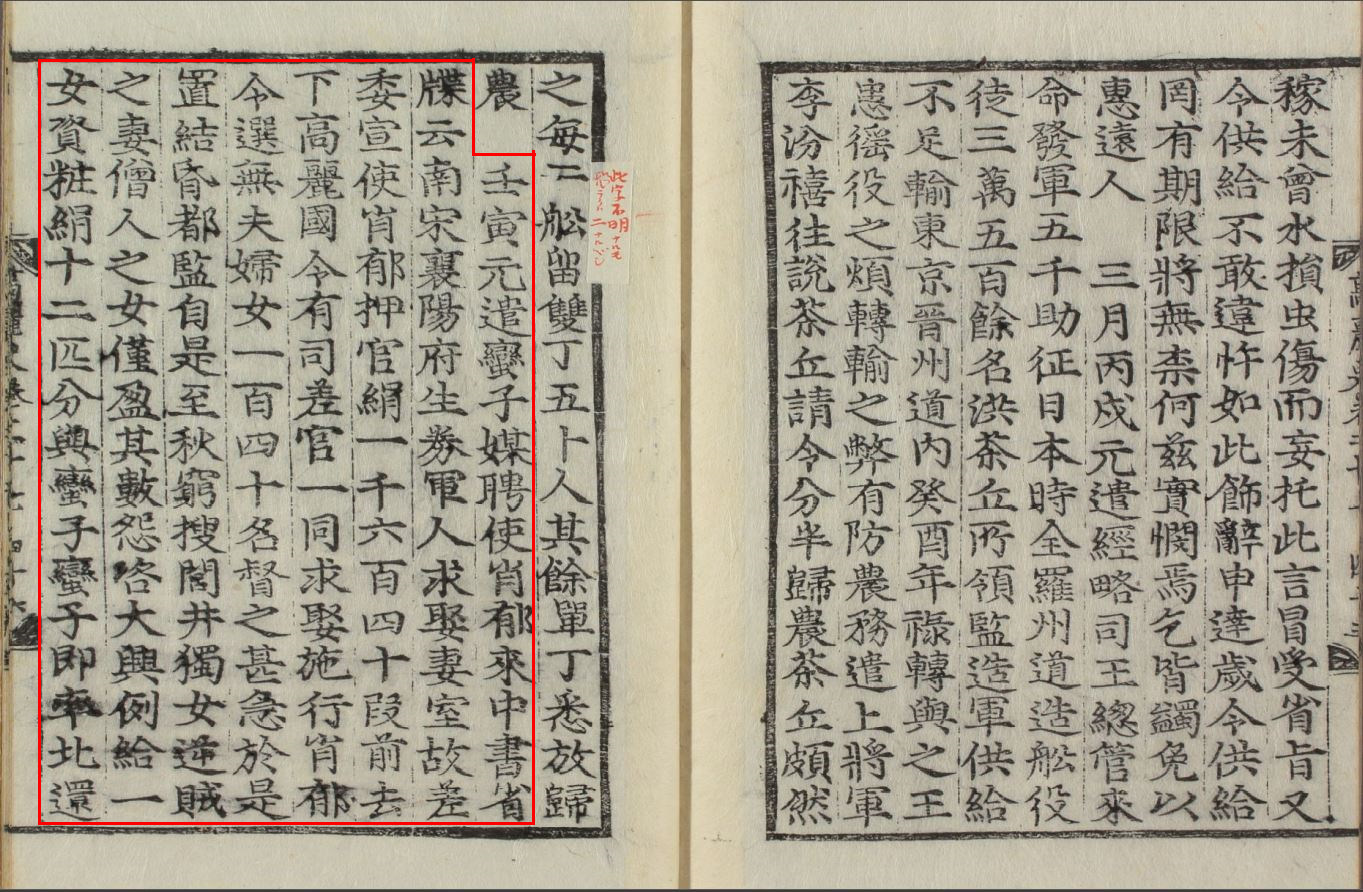 稼未曾水損虫傷而妄托此言冒受省旨又
令供給不敢違忤如此飾辭申達歲令供給
罔有期限將無柰何兹實憫焉乞皆蠲免以
惠遠人　三月丙戍元遣經略司王總管來
命發軍五千助征日本時全羅州道造舩役
徒三萬五百餘名洪茶丘所領監造軍供給
不足輸東京晋州道內癸酉年祿轉與之王
患徭役之煩轉輸之弊有防農務遣上將軍
李汾禧往說茶丘請令分半歸農茶丘頗然
之每二舩留雙丁五十人其餘單丁悉放歸
農　壬寅元遣蠻子媒聘使肖郁來中書省
牒云南宋襄陽府生券軍人求娶妻室故差
委宣使肖郁押官絹一千六百四十段前去
下高麗國令有司差官一同求娶施行肖郁
令選無夫婦女一百四十名督之甚急於是
置結昏都監自是至秋窮搜閭井獨女逆賊
之妻僧人之女僅盈其數怨咨大興例給一
女資粧絹十二匹分與蠻子蠻子即率北還
此字不明ナルモ